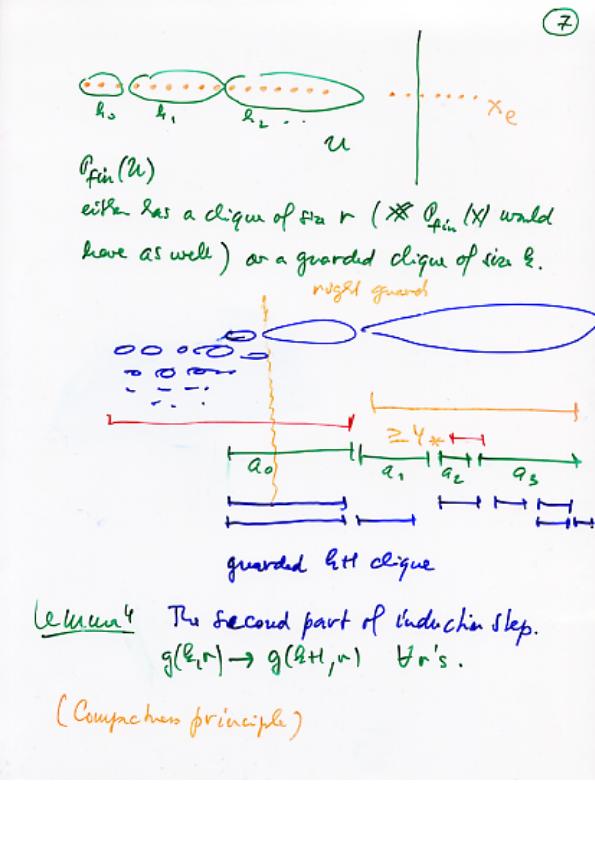 7
h₀ h₁ h₂ . . .
x_e
U
P_fin(U)
either has a clique of size r ( P_fin(X) would
have as well ) or a guarded clique of size k.
right guard
≥ 4 *
a₀ a₁ a₂ a₃
guarded k+1 clique
Lemma 4 The second part of induction step.
g(k,r) → g(k+1,r) ∀ r's.
(Compactness principle)